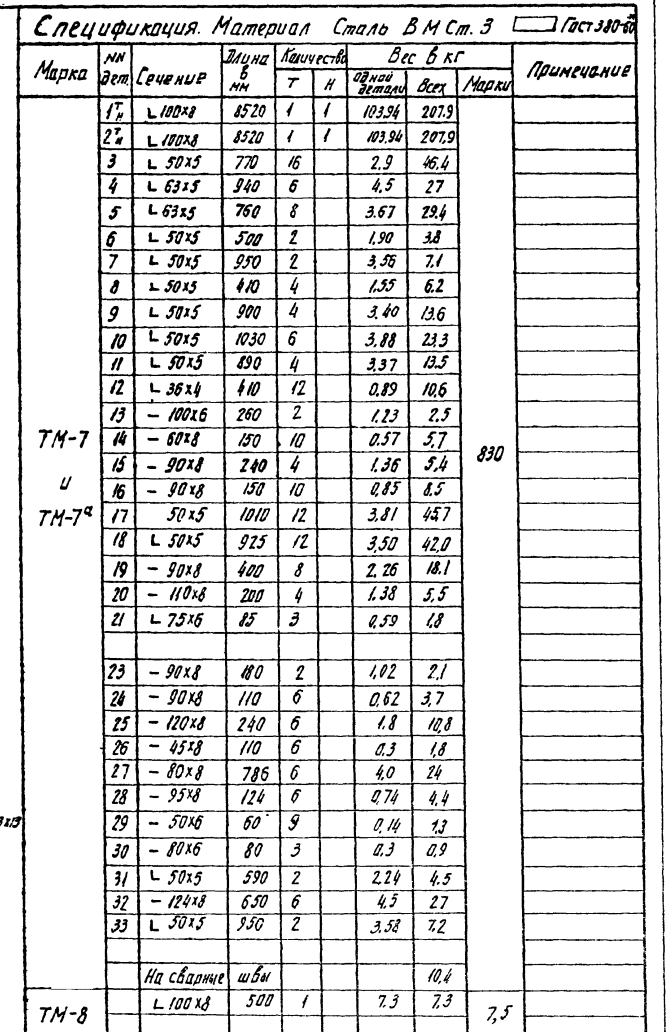 Спецификация. Материал Сталь В М Ст. 3 Гост 380-60
Марка NN дет. Сечение Длина в мм Количество Вес в кг Примечание
Т Н одной детали Всех Марки
1 т н L 100x8 8520 1 1 103,94 207,9
2 т н L 100x8 8520 1 1 103,94 207,9
3 L 50x5 770 16 2.9 46.4
4 L 63x5 940 6 4,5 27
5 L 63x5 760 8 3.67 29.4
6 L 50x5 500 2 1,90 3,8
7 L 50x5 950 2 3,56 7,1
8 L 50x5 410 4 1.55 6.2
9 L 50x5 900 4 3.40 13.6
10 L 50x5 1030 6 3,88 23,3
11 L 50x5 890 4 3,37 13.5
12 L 36x4 410 12 0,89 10,6
13 - 100x6 260 2 1,23 2,5
ТМ-7 14 - 60x8 150 10 0.57 5,7
15 - 90x8 240 4 1.36 5,4 830
и 16 - 90x8 150 10 0,85 8.5
ТМ-7а 17 50x5 1010 12 3,81 45,7
18 L 50x5 925 12 3,50 42,0
19 - 90x8 400 8 2,26 18.1
20 - 110x8 200 4 1,38 5,5
21 L 75x6 85 3 0,59 1,8
23 - 90x8 180 2 1,02 2,1
24 - 90x8 110 6 0,62 3,7
25 - 120x8 240 6 1.8 10,8
26 - 45x8 110 6 0,3 1,8
27 - 80x8 786 6 4,0 24
28 - 95x8 124 6 0,74 4,4
29 - 50x6 60 9 0,14 1,3
30 - 80x6 80 3 0,3 0,9
31 L 50x5 590 2 2,24 4,5
32 - 124x8 650 6 4,5 27
33 L 50x5 950 2 3,58 7,2
На сварные швы 10,4
ТМ-8 L 100x8 500 1 7.3 7,3 7,5